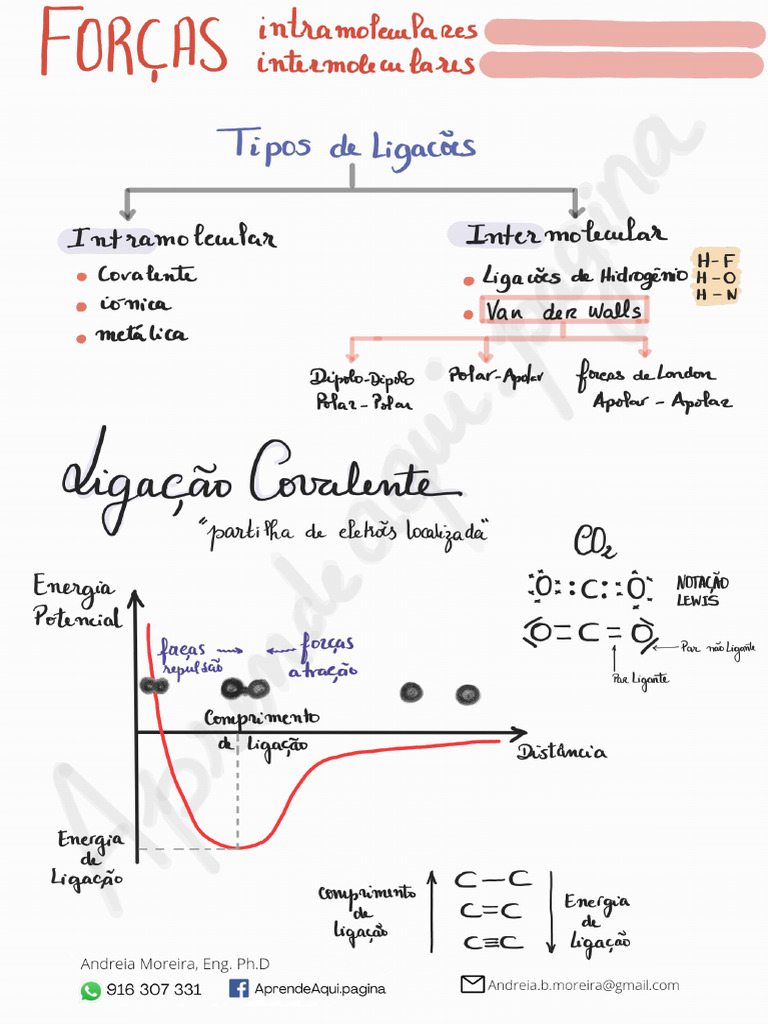 FORÇAS intramoleculares
intermoleculares
Tipos de Ligacões
Intramolecular
• Covalente
• iónica
• metálica
Intermolecular
• Ligacões de Hidrogênio
H-F
H-O
H-N
• Van der Walls
Dipolo-Dipolo
Polar-Polar
Polar-Apolar
forças de London
Apolar-Apolar
Ligação Covalente
"partilha de eletrões localizada"
CO2
:Ö::C::Ö:
NOTAÇÃO
LEWIS
O=C=O
Par não ligante
Par Ligante
Energia
Potencial
forças
repulsão
forças
atração
Comprimento
de Ligação
Distância
Energia
de
Ligação
Comprimento
de
Ligação
C-C
C=C
C≡C
Energia
de
Ligação
Andreia Moreira, Eng. Ph.D
916 307 331
AprendeAqui.pagina
Andreia.b.moreira@gmail.com
Aprendeaqui.pagina